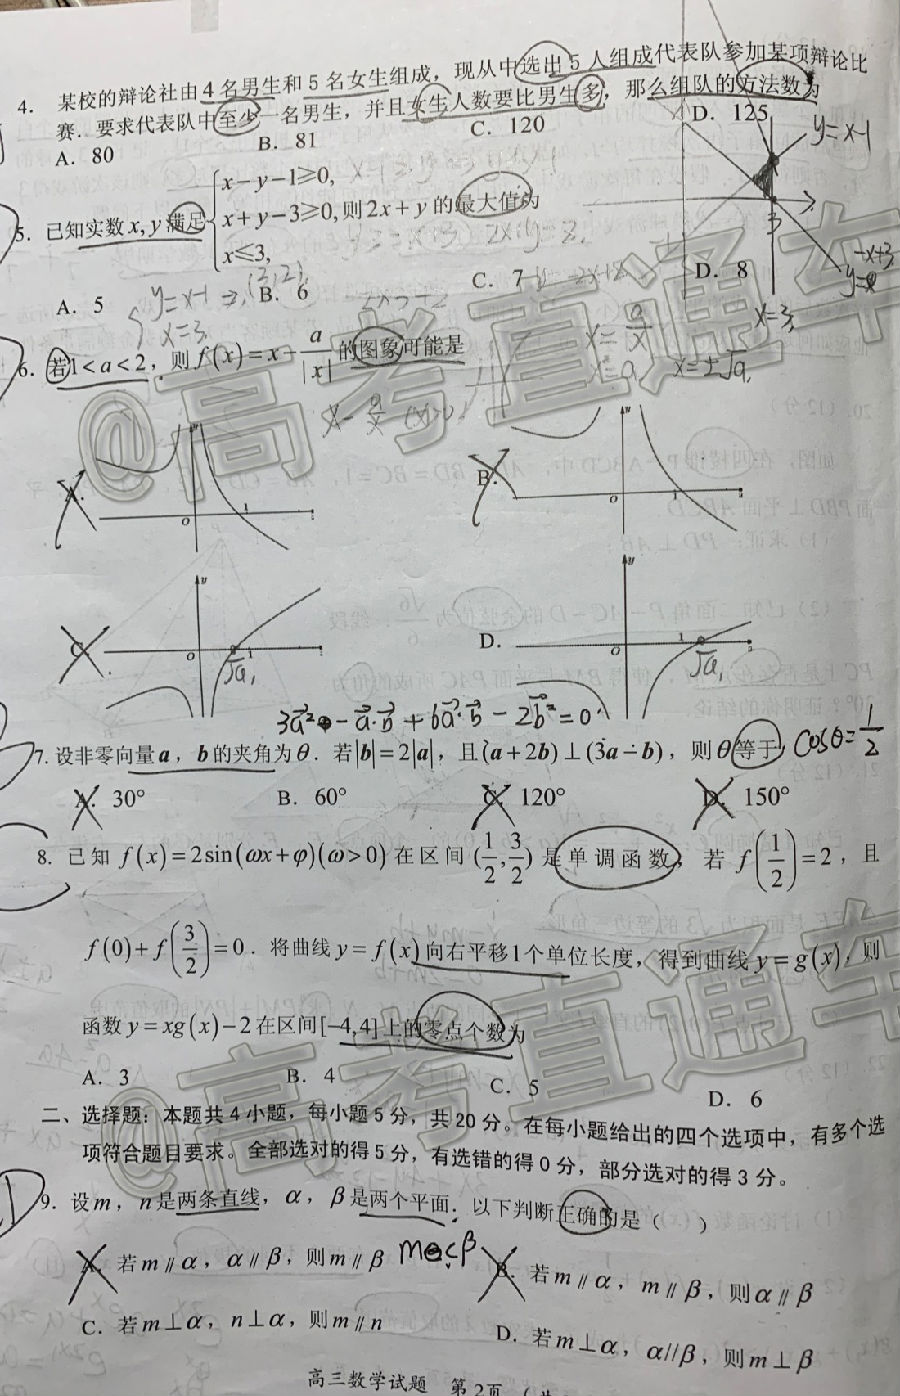 4. 某校的辩论社由4名男生和5名女生组成，现从中选出5人组成代表队参加某项辩论比
赛．要求代表队中至少一名男生，并且女生人数要比男生多，那么组队的方法数为
A. 80 B. 81 C. 120 D. 125
y=x-1
5. 已知实数x, y满足{x−y−1≥0, x+y−3≥0, x≤3, 则2x+y的最大值为
A. 5 B. 6 C. 7 D. 8
y=x-1
x=3,
(3,2),
3
-x+3
x=3,
6. 若1<a<2，则f(x)=x−a/|x|的图象可能是
x=a/x
x=±√a,
A. B.
y y
O 1 O 1
C. D.
y y
O 1 O 1
√a, √a,
3a⃗²-a⃗·b⃗+6a⃗·b⃗-2b⃗²=0
7. 设非零向量a，b的夹角为θ．若|b|=2|a|，且(a+2b)⊥(3a−b)，则θ等于 cosθ=1/2
A. 30° B. 60° C. 120° D. 150°
8. 已知f(x)=2sin(ωx+φ)(ω>0)在区间(1/2,3/2)是单调函数，若f(1/2)=2，且
f(0)+f(3/2)=0．将曲线y=f(x)向右平移1个单位长度，得到曲线y=g(x)，则
函数y=xg(x)−2在区间[−4,4]上的零点个数为
A. 3 B. 4 C. 5 D. 6
二、选择题：本题共4小题，每小题5分，共20分。在每小题给出的四个选项中，有多个选
项符合题目要求。全部选对的得5分，有选错的得0分，部分选对的得3分。
9. 设m，n是两条直线，α，β是两个平面．以下判断正确的是（ ）
A. 若m∥α，α∥β，则m∥β B. 若m∥α，m∥β，则α∥β
C. 若m⊥α，n⊥α，则m∥n D. 若m⊥α，α//β，则m⊥β
高三数学试题 第2页
@高考直通车
@高考直通车